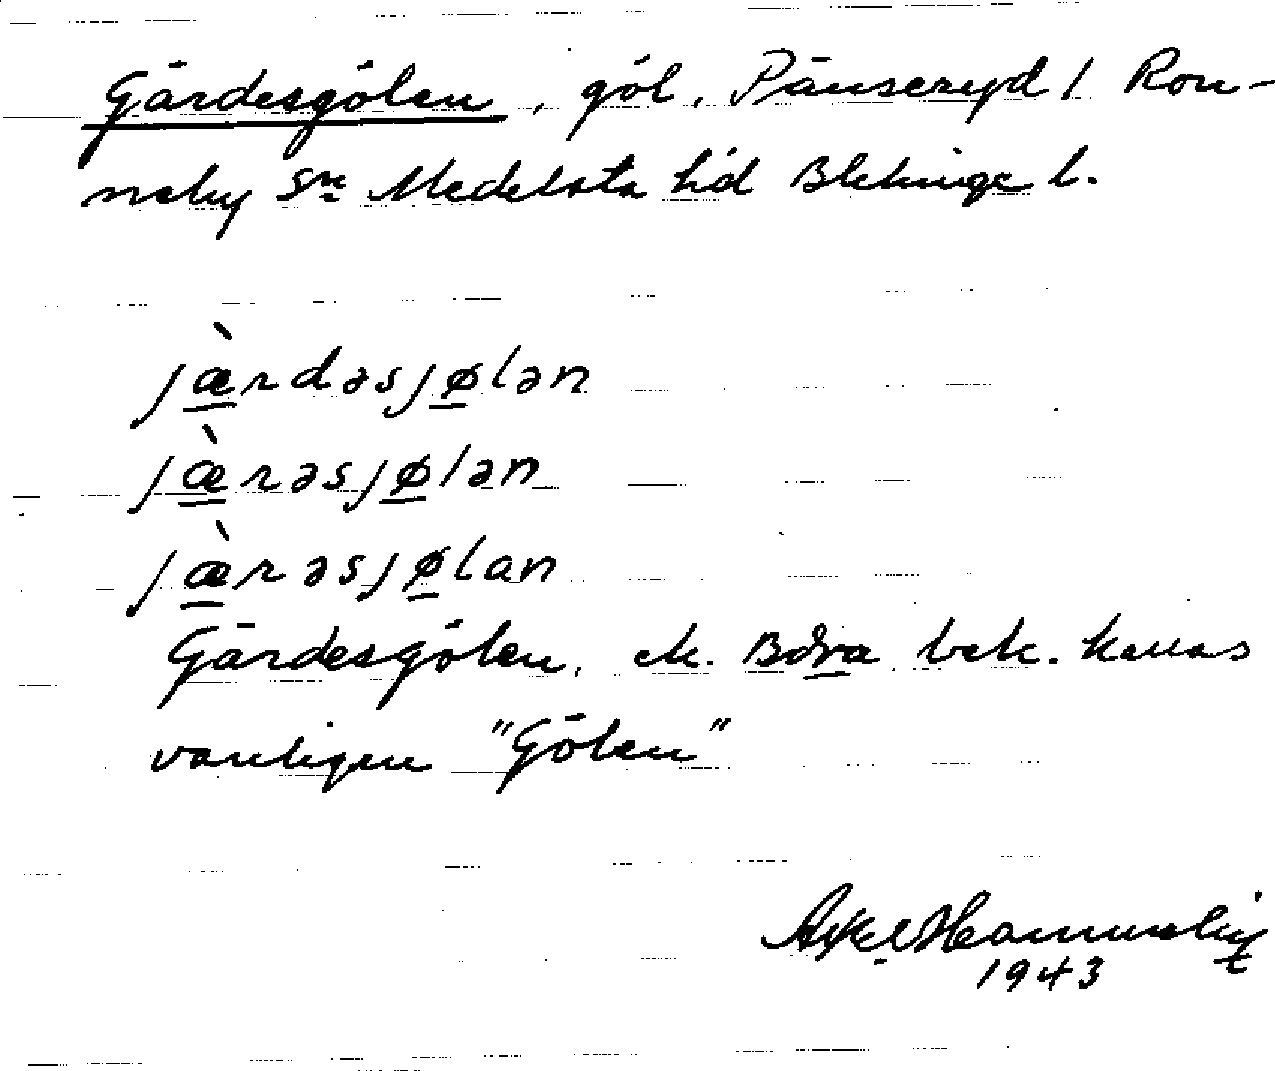 Gärdesgölen, göl, Pänseryd 1 Ron-
neby sn Medelsta hd Blekinge l.
jæ̀rdəsjølən
jæ̀rəsjølən
jæ̀rəsjølan
Gärdesgölen, ek. bek. kallas
vanligen "Gölen"
Axel
1943